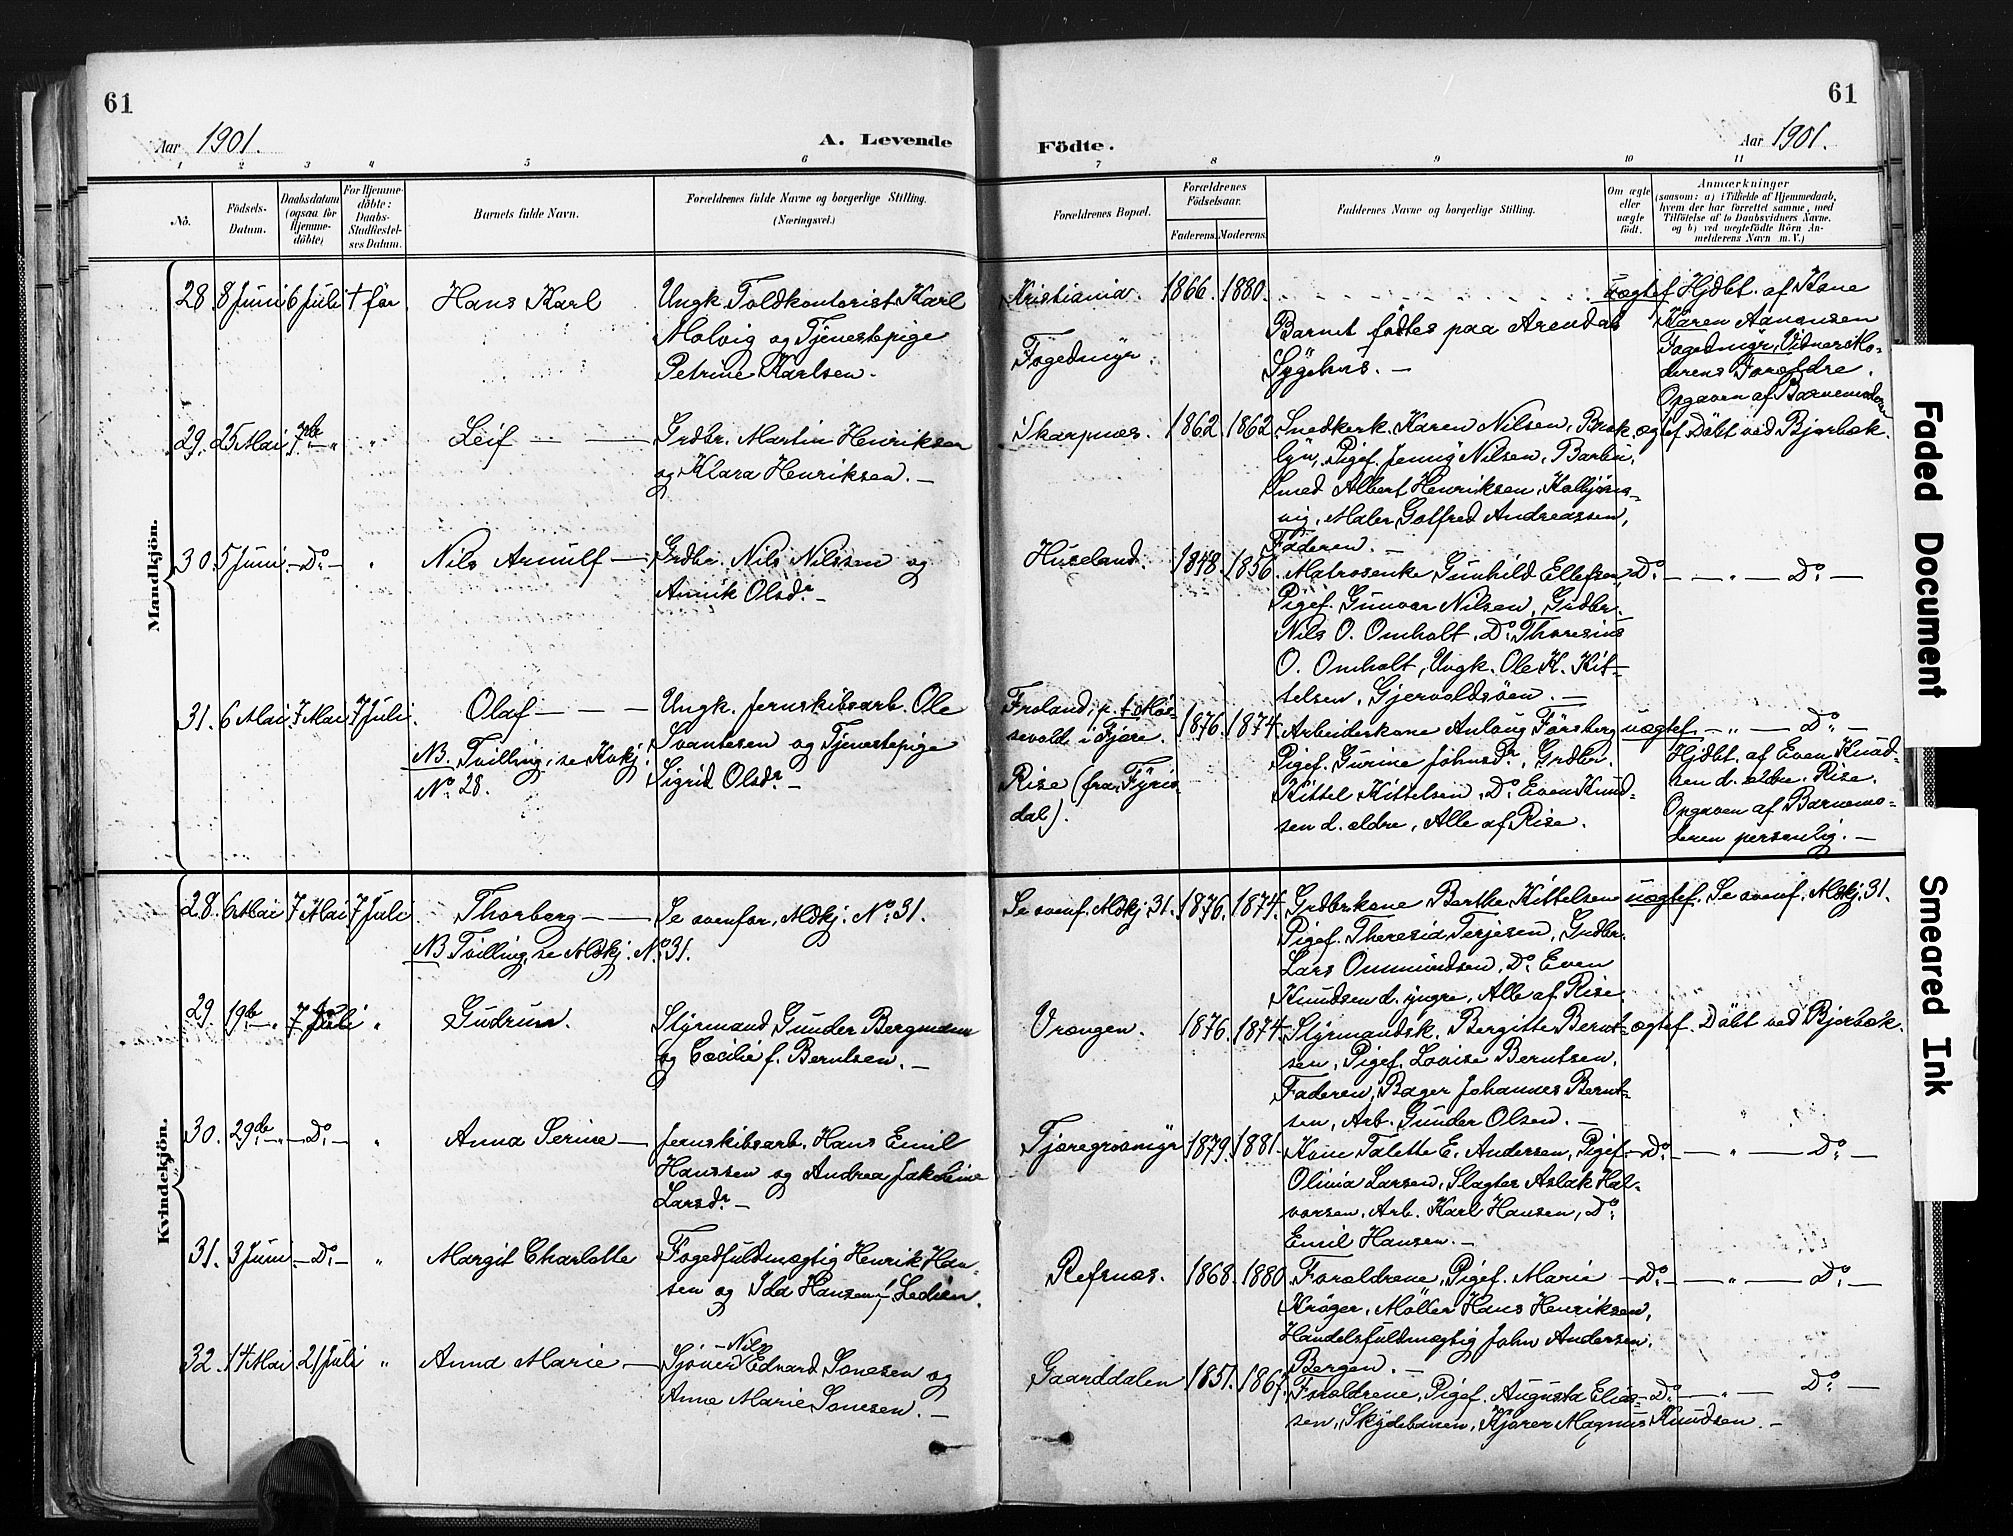 61
61
Aar 1901.
A. Levende
Födte.
Aar 1901.
1 2 3 4 5 6 7 8 9 10 11
No.
Födsels-
Datum.
Daabsdatum
(ogsaa for
Hjemme-
döbte)
For Hjemme-
döbte:
Daabs-
Stadfæstel-
ses Datum.
Barnets fulde Navn.
Forældrenes fulde Navne og borgerlige Stilling.
(Næringsvei.)
Forældrenes Bopæl.
Forældrenes
Födselsaar.
Faderens. Moderens.
Faddernes Navne og borgerlige Stilling.
Om ægte
eller
uægte
födt.
Anmærkninger
(saasom: a) i Tilfælde af Hjemmedaab,
hvem der har forrettet samme, med
Tilföielse af to Daabsvidners Navne,
og b) ved uægtefödte Börn An-
melderens Navn m. V.)
Mandkjön.
28. 8 Juni 6 Juli † før Hans Karl
Ungk. Toldkontorist Karl
Molvig og Tjenestepige
Petrine Karlsen.
Kristiania.
Fogedmyr.
1866. 1880.
Barnet fødtes paa Arendals
Sygehus. —
uægtef.
Hjdbt. af Kone
Karen Aanonsen
Fogedmyr, Vidner Mo-
derens Forældre.
Opgaven af Barnemoderen
29. 25 Mai 7de " " Leif — —
Grdbr. Martin Henriksen
og Klara Henriksen. —
Skarpnæs. 1862. 1862.
Snedkerk. Karen Nilsen, Bræk-
lyn, Pigef. Jenny Nilsen, Barbu,
Smed Albert Henriksen, Kolbjørns-
vig, Maler Golfred Andreassen,
Faderen. —
ægtef. Döbt ved Bjorbæk.
30. 5 Juni — Do — " Nils Arnulf —
Grdbr. Nils Nilssen og
Annik Olsdr. —
Huseland. 1848. 1856.
Matrosenke Gunhild Ellefsen,
Pigef. Gunvor Nilsen, Grdbr.
Nils O. Omholt, Do. Thoresius
O. Omholt, Ungk. Ole K. Kit-
telsen, Gjervoldsöen. —
Do. — " — Do. —
31. 6 Mai. 7 Mai 7 Juli. Olaf — — —
NB. Tvilling, se Kvkj.
No. 28.
Ungk. Jernskibsarb. Ole
Svantesen og Tjenestepige
Sigrid Olsdr. —
Froland, p. t. Mös-
sevold i Fjære.
Rise (fra Fyris-
dal).
1876. 1874.
Arbeiderkone Anlaug Forsberg
Pigef. Gurine Johnsdr., Grdbr.
Kittel Kittelsen, Do. Even Knud-
sen d. ældre, Alle af Rise.
uægtef. — " — Do. —
Hjdbt. af Even Knud-
sen d. ældre. Rise.
Opgaven af Barnemo-
deren personlig. —
Kvindekjön.
28. 6 Mai 7 Mai 7 Juli Thorberg — —
NB Tvilling, se Mdkj. No. 31.
Se ovenfor, Mdkj. No. 31.
Se ovenf. Mdkj. 31. 1876. 1874.
Grdbrkone Berthe Kittelsen
Pigef. Theresia Terjesen, Grdbr.
Lars Ommundsen, Do. Even
Knudsen d. yngre, Alle af Rise.
uægtef. Se ovenf. Mdkj. 31.
29. 19de " 7 Juli " Gudrun.
Styrmand Gunder Bergmann
og Cecilie f. Berntsen. —
Vrængen. 1876. 1874.
Styrmandsk. Bergitte Bernt-
sen, Pigef. Lovise Berntsen,
Faderen, Bager Johannes Bernt-
sen, Arb. Gunder Olsen. —
ægtef. Döbt ved Bjorbæk.
30. 29de " — Do — " Anna Serine —
Jernskibsarb. Hans Emil
Hanssen og Andrea Jakobine
Larsdr. —
Tjæregrosmyr 1879. 1881.
Kone Talette E. Andersen, Pigef.
Olivia Larsen, Slagter Aslak Hal-
vorsen, Arb. Karl Hansen, Do.
Emil Hansen. —
— Do. — " — Do. —
31. 3 Juni — Do — " Margit Charlotte
Fogedfuldmægtig Henrik Han-
sen og Ida Hansen f. Ledien.
Refsnæs. 1868. 1880.
Forældrene, Pigef. Marie
Kröger, Möller Hans Henriksen,
Handelsfuldmægtig John Andersen,
Bergen. —
— Do. — " — Do. —
32. 14 Mai 21 Juli " Anna Marie —
Nils
Sjömd Edvard Sonesen og
Anne Marie Sonesen. —
Gaarddalen 1851. 1867.
Forældrene, Pigef. Augusta Elias-
sen, Skydebanen, Kjører Magnus Knudsen. —
Do. — " — Do. —
Faded Document
Smeared Ink